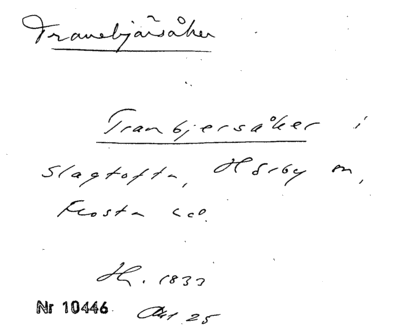 Tranebjärsåker
Tranbjersåker i
Slagtofta, Hörby sn,
Frosta hd.
1833
Nr 10446 Akt 25